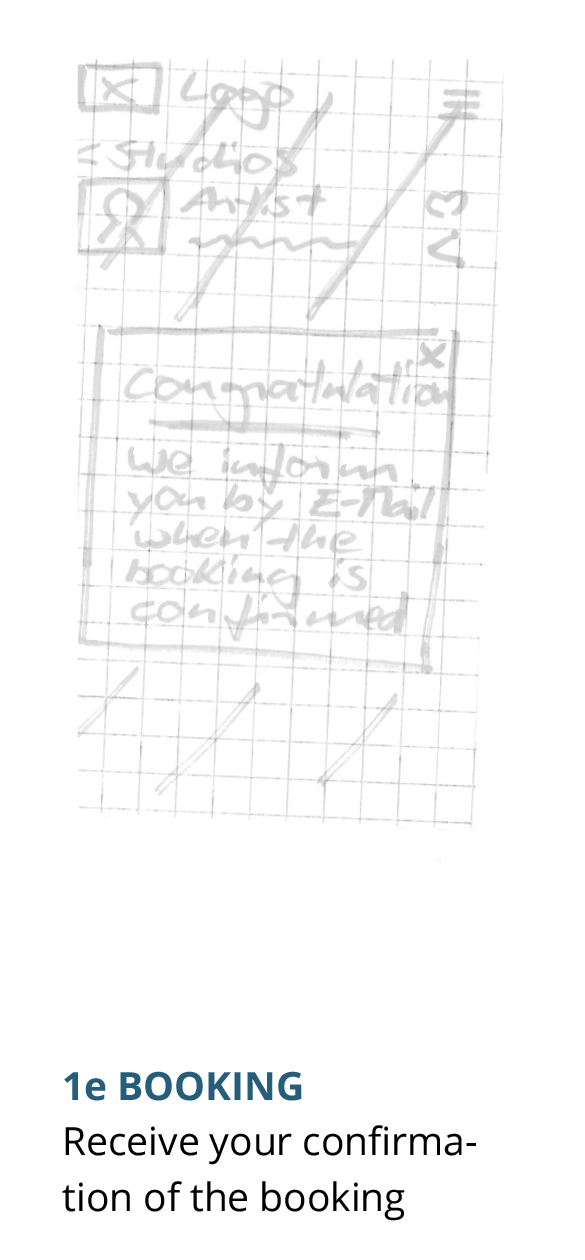 Logo
< Studios
Artist
x
Congratulation
we inform
you by E-Mail
when the
booking is
confirmed
1e BOOKING
Receive your confirma-
tion of the booking